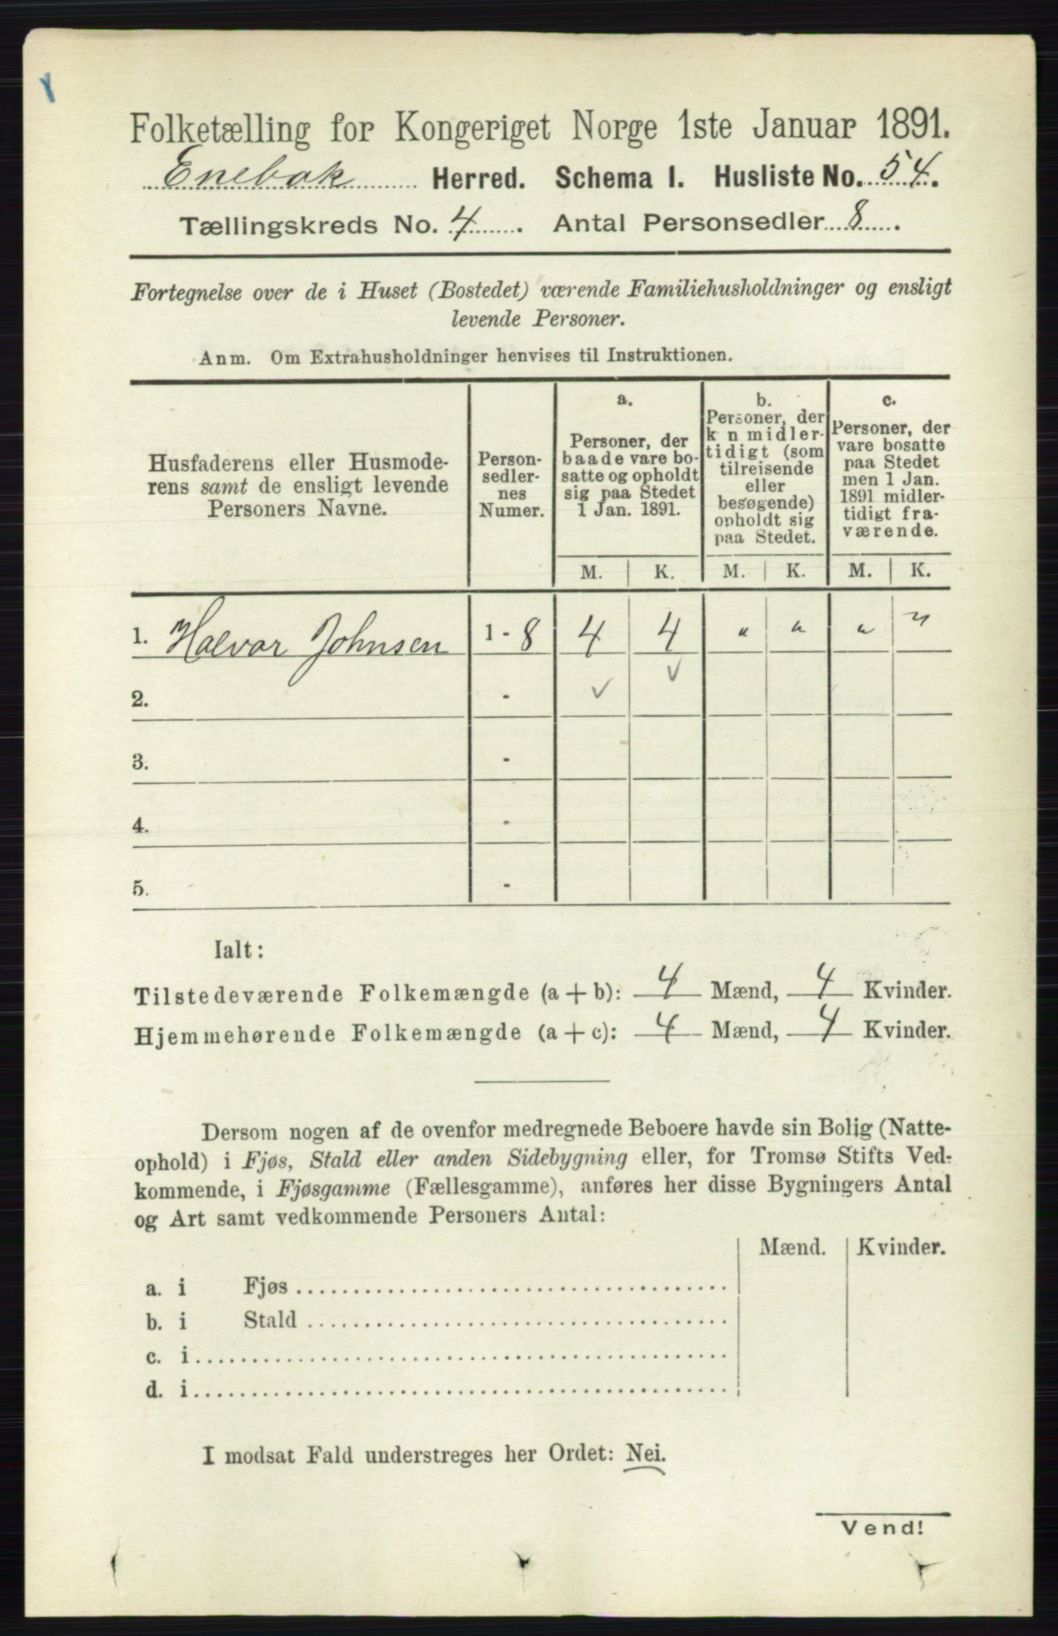 Folketælling for Kongeriget Norge 1ste Januar 1891.
Enebak Herred. Schema I. Husliste No. 54.
Tællingskreds No. 4. Antal Personsedler 8.
Fortegnelse over de i Huset (Bostedet) værende Familiehusholdninger og ensligt
levende Personer.
Anm. Om Extrahusholdninger henvises til Instruktionen.
Husfaderens eller Husmode-
rens samt de ensligt levende
Personers Navne.
Person-
sedler-
nes
Numer.
a.
Personer, der
baade vare bo-
satte og opholdt
sig paa Stedet
1 Jan. 1891.
b.
Personer, der
k n midler-
tidigt (som
tilreisende
eller
besøgende)
opholdt sig
paa Stedet.
c.
Personer, der
vare bosatte
paa Stedet
men 1 Jan.
1891 midler-
tidigt fra-
værende.
M. K. M. K. M. K.
1. Halvor Johnsen 1 - 8 4 4 " " " "
2. - ✓ ✓
3. -
4. -
5. -
Ialt:
Tilstedeværende Folkemængde (a + b): 4 Mænd, 4 Kvinder.
Hjemmehørende Folkemængde (a + c): 4 Mænd, 4 Kvinder.
Dersom nogen af de ovenfor medregnede Beboere havde sin Bolig (Natte-
ophold) i Fjøs, Stald eller anden Sidebygning eller, for Tromsø Stifts Ved-
kommende, i Fjøsgamme (Fællesgamme), anføres her disse Bygningers Antal
og Art samt vedkommende Personers Antal:
Mænd. Kvinder.
a. i Fjøs
b. i Stald
c. i
d. i
I modsat Fald understreges her Ordet: Nei.
Vend!